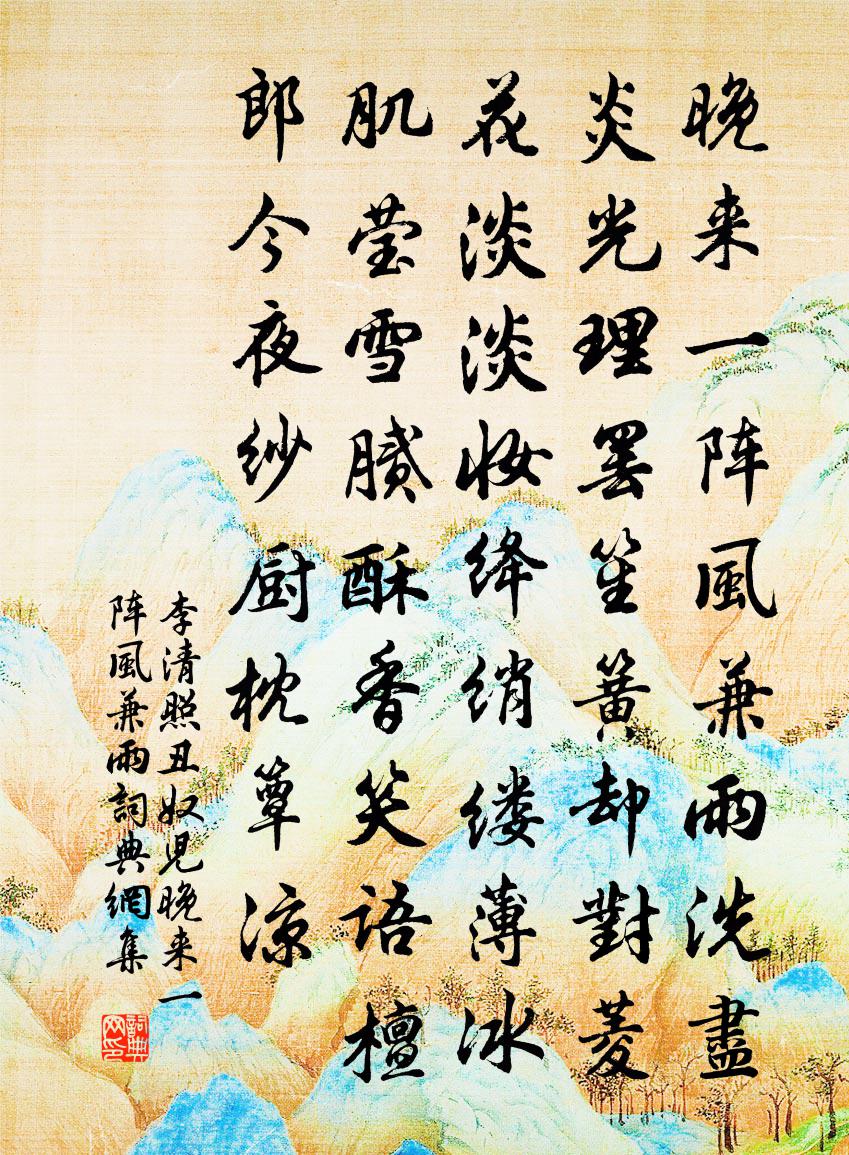 晚来一阵風兼雨洗盡
炎光理罢笙簧却對菱
花淡淡妆绛绡缕薄冰
肌莹雪腻酥香笑语檀
郎今夜纱厨枕簟凉
李清照丑奴児晚来一
阵風兼雨詞典網集
詞典網印